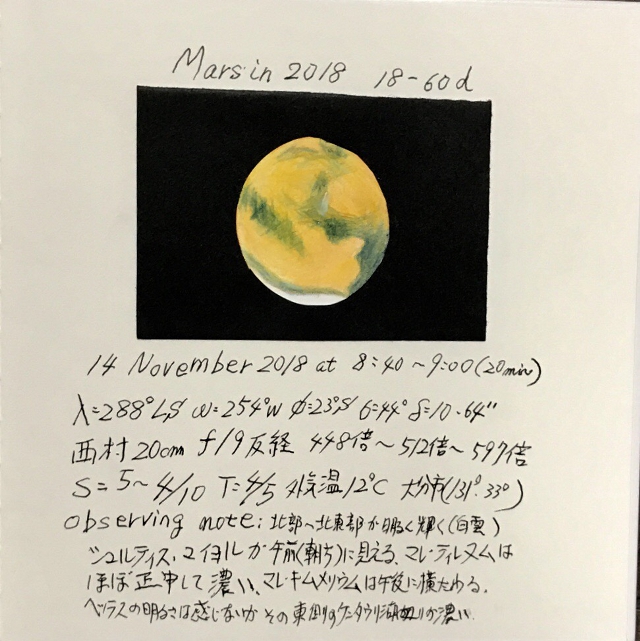 Mars in 2018 18-60d
14 November 2018 at 8:40 ~ 9:00 (20min)
λ=288°LS ω=254°W φ=23°S ι=44° δ=10.64"
西村20cm f/9反経 448倍~512倍~597倍
S=5~4/10 T=4/5 外気温12°C 大分市(131°.33°)
observing note: 北部へ北東部が明るく輝く(白雲)
シュルティス.マイヨルが午前(朝方)に見える、マレ・ティレヌムは
ほぼ正中して濃い、マレキムメリウムは午後に横たわる。
ヘラスの明るさは感じないが その東側の